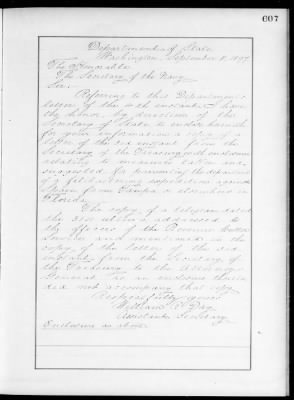 607
Department of State
Washington, September 8, 1897
The Honorable
The Secretary of the Navy
Sir:
Referring to this Department's
letter of the 4th instant, I have
the honor, by direction of the
Secretary of State to enclose herewith
for your information a copy of a
letter of the 3rd instant from the
Secretary of the Treasury, with enclosures
relating to measures taken and
suggested for preventing the departure
of a filibustering expedition against
Spain from Tampa or elsewhere in
Florida.
The copy of a telegram dated
the 31st ultimo addressed to
the officers of the Revenue Cutter
and mentioned in the
copy of the letter of the 3rd
instant from the Secretary of
the Treasury to the Attorney
General as an enclosure therein
did not accompany that copy.
Respectfully yours
William R. Day
Assistant Secretary
Enclosure as above.